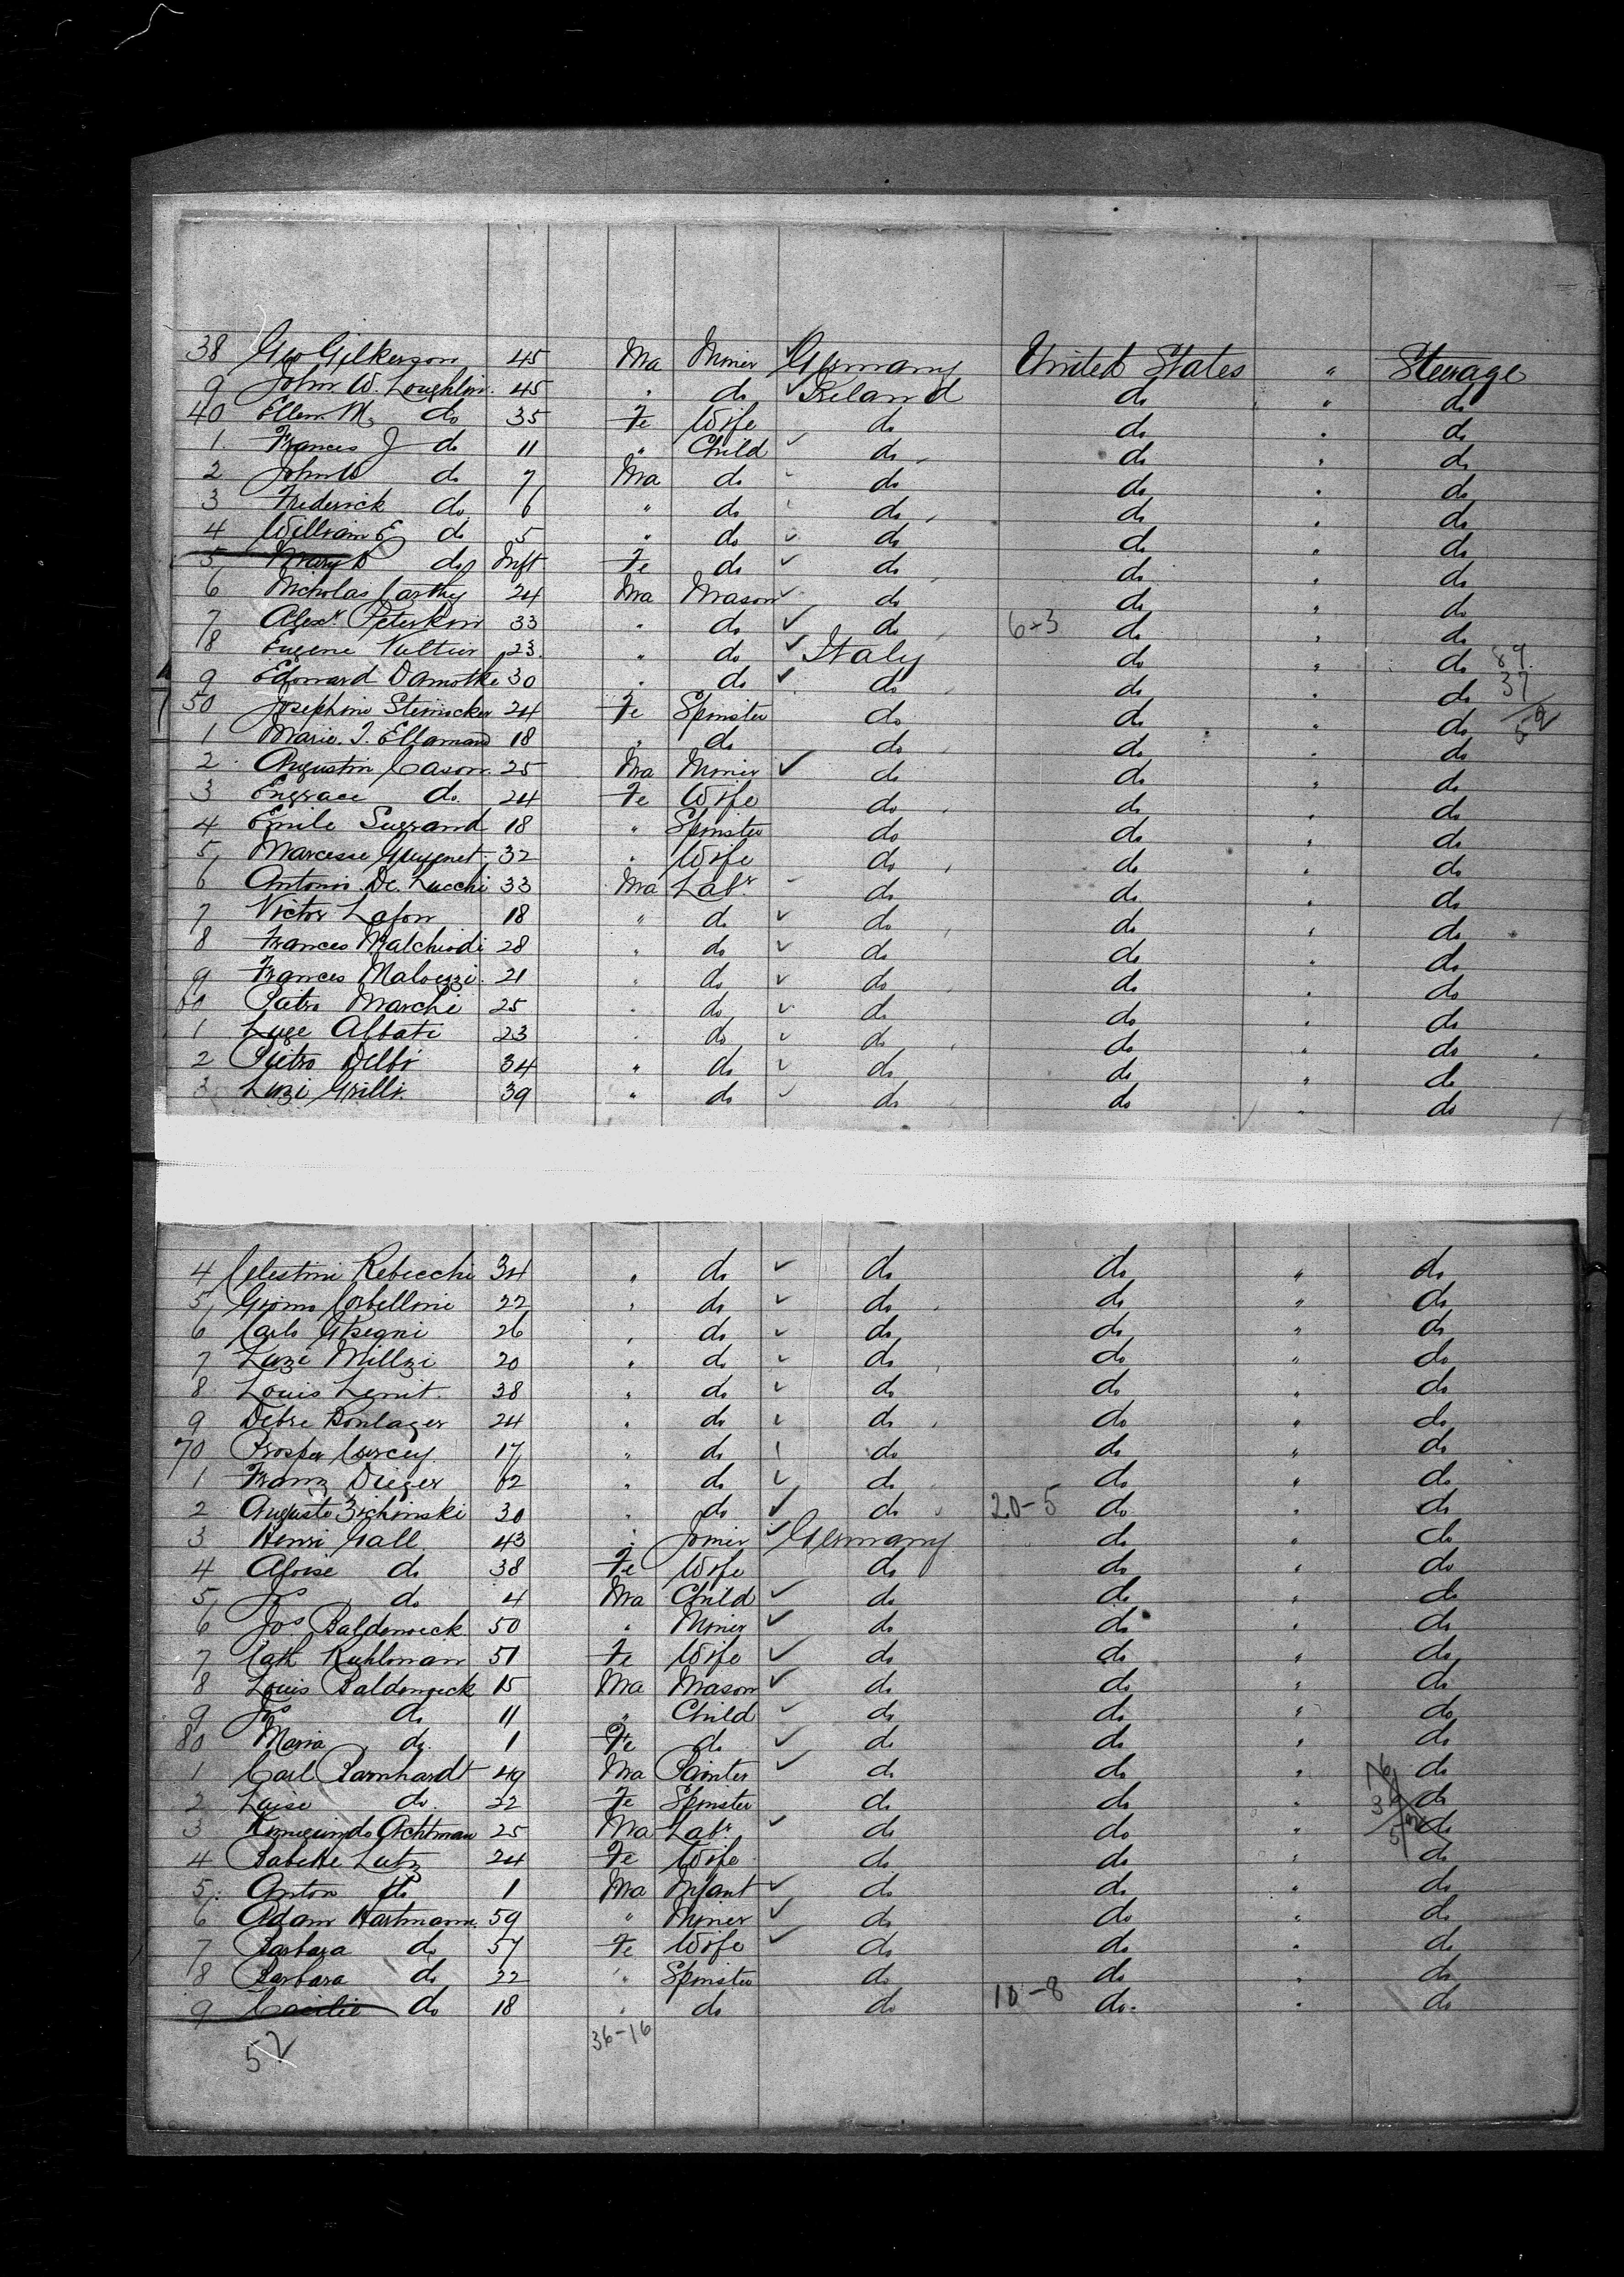 38 Geo Gilkerson 45 Ma Miner Germany United States " Steerage
9 John W. Loughlin 45 " do Ireland do " do
40 Ellen M do 35 Fe Wife do do " do
1 Frances J do 11 " Child do do " do
2 John W do 7 Ma do do do " do
3 Frederick do 6 " do do do " do
4 William E do 5 " do do do " do
5 Mary D do Inft Fe do do do " do
6 Nicholas Carthy 24 Ma Mason do do " do
7 Alexr Peterkin 33 " do do 6+3 do " do
8 Eugene Vultier 23 " do Italy do " do 89
9 Edomard Damothe 30 " do do do " do 37
50 Josephine Steinicker 24 Fe Spinster do do " do 52
1 Marie. J. Ellamand 18 " do do do " do
2 Augustin Cason 25 Ma Miner do do " do
3 Engrace do 24 Fe Wife do do " do
4 Emile Surrand 18 " Spinster do do " do
5 Marcesse Guyenet 32 " Wife do do " do
6 Antonio De. Lucchi 33 Ma Labr do do " do
7 Victor Lafon 18 " do do do " do
8 Frances Malchiodi 28 " do do do " do
9 Frances Malvezzi 21 " do do do " do
60 Pietro Marchi 25 " do do do " do
1 Luge Albati 23 " do do do " do
2 Pietro Delbi 34 " do do do " do
3 Luzi Grilli 39 " do do do " do
4 Celestini Rebecchi 34 " do do do " do
5 Giomo Corbellini 22 " do do do " do
6 Carlo 26 " do do do " do
7 Luze Millzi 20 " do do do " do
8 Louis Lenit 38 " do do do " do
9 Debre Bonlager 24 " do do do " do
70 Prosper Corcey 17 " do do do " do
1 Franz Dieger 62 " do do do " do
2 Augusto Zichinski 30 " do do 20-5 do " do
3 Henri Gall 43 " Joiner Germany do " do
4 Aloise do 38 Fe Wife do do " do
5 Jos do 4 Ma Child do do " do
6 Jos Baldenweck 50 " Miner do do " do
7 Cath Kuhlman 51 Fe Wife do do " do
8 Louis Baldenweck 15 Ma Mason do do " do
9 Jos do 11 " Child do do " do
80 Maria do 1 Fe do do do " do
1 Carl Barnhardt 49 Ma Painter do do " do
2 Luise do 22 Fe Spinster do do " do
3 Achtman 25 Ma Labr do do " do
4 Babette Lutz 24 Fe Wife do do " do
5 Anton do 1 Ma Infant do do " do
6 Adam Hartmann 59 " Miner do do " do
7 Barbara do 57 Fe Wife do do " do
8 Barbara do 22 " Spinster do do " do
9 Cacilie do 18 " do do 10-8 do " do
52 36-16